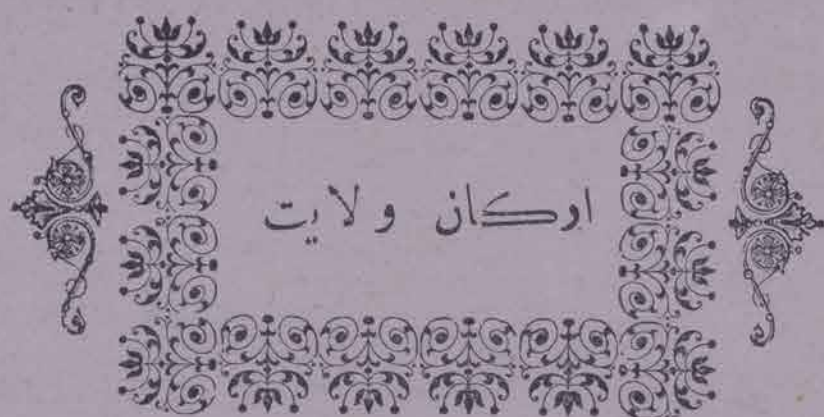 اركان ولايت